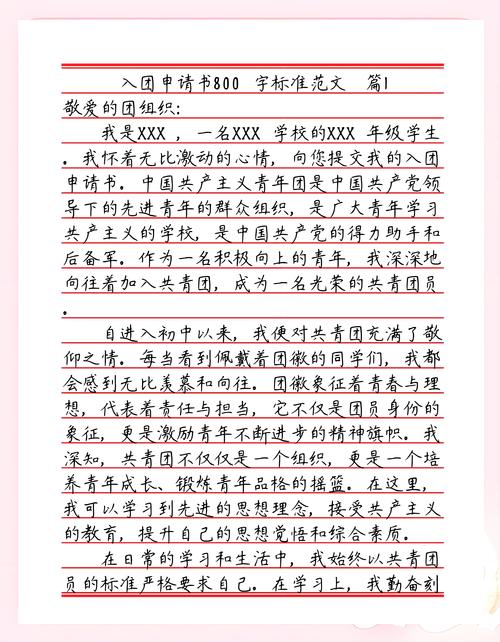 入团申请书800 字标准范文 篇1
敬爱的团组织:
我是XXX ，一名XXX 学校的XXX 年级学生
。我怀着无比激动的心情，向您提交我的入团
申请书。中国共产主义青年团是中国共产党领
导下的先进青年的群众组织，是广大青年学习
共产主义的学校，是中国共产党的得力助手和
后备军。作为一名积极向上的青年，我深深地
向往着加入共青团，成为一名光荣的共青团员
。
自进入初中以来，我便对共青团充满了敬
仰之情。每当看到佩戴着团徽的同学们，我都
会感到无比羡慕和向往。团徽象征着青春与理
想，代表着责任与担当，它不仅是团员身份的
象征，更是激励青年不断进步的精神旗帜。我
深知，共青团不仅仅是一个组织，更是一个培
养青年成长、锻炼青年品格的摇篮。在这里，
我可以学习到先进的思想理念，接受共产主义
的教育，提升自己的思想觉悟和综合素质。
在日常的学习和生活中，我始终以共青团
员的标准严格要求自己。在学习上，我勤奋刻